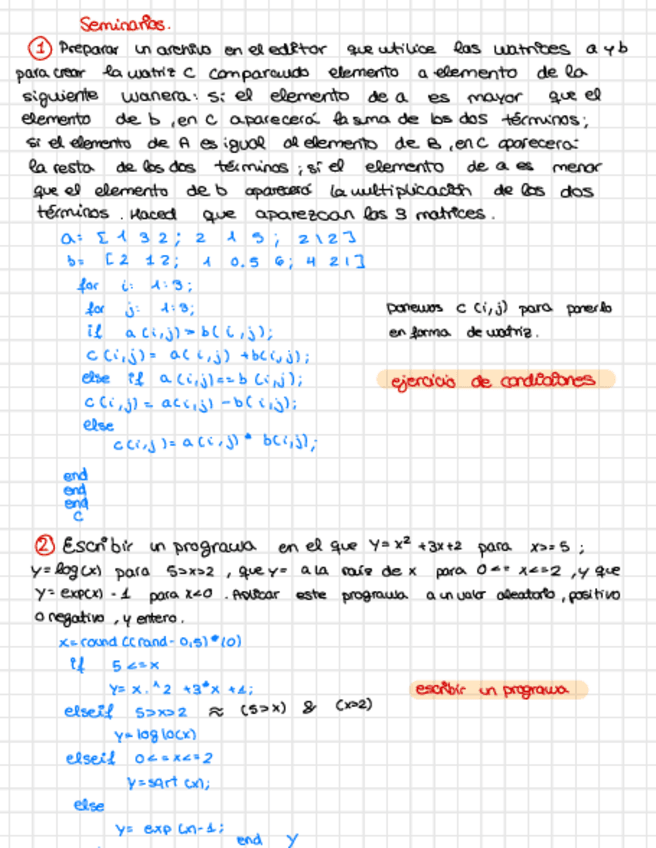 Seminarios.
① Preparar un archivo en el editor que utilice las matrices a y b
para crear la matriz c comparando elemento a elemento de la
siguiente manera: si el elemento de a es mayor que el
elemento de b, en c aparecerá la suma de los dos términos;
si el elemento de A es igual al elemento de B, en C aparecerá:
la resta de los dos términos; si el elemento de a es menor
que el elemento de b aparecerá la multiplicación de los dos
términos. Haced que aparezcan las 3 matrices.
a: [ 1 3 2; 2 1 5; 2 1 2]
b= [2 1 2; 1 0.5 6; 4 2 1]
for i: 1:3;
for j: 1:3;
if a(i,j)>b(i,j);
c(i,j)= a(i,j) +b(i,j);
else if a(i,j)==b(i,j);
c(i,j)= a(i,j) -b(i,j);
else
c(i,j)= a(i,j)* b(i,j);
end
end
end
c
ponemos c (i,j) para ponerlo
en forma de matriz.
ejercicio de condiciones
② Escribir un programa en el que y=x² +3x+2 para x>=5;
y=log(x) para 5>x>2, que y= a la raíz de x para 0<= x<=2, y que
y=exp(x) -1 para x<0. Aplicar este programa a un valor aleatorio, positivo
o negativo, y entero.
x=round((rand-0,5)*10)
if 5<=x
y= x.^2 +3*x +2;
elseif 5>x>2 ≈ (5>x) & (x>2)
y=log10(x)
elseif 0<=x<=2
y=sqrt(x);
else
y= exp(x)-1;
end y
escribir un programa